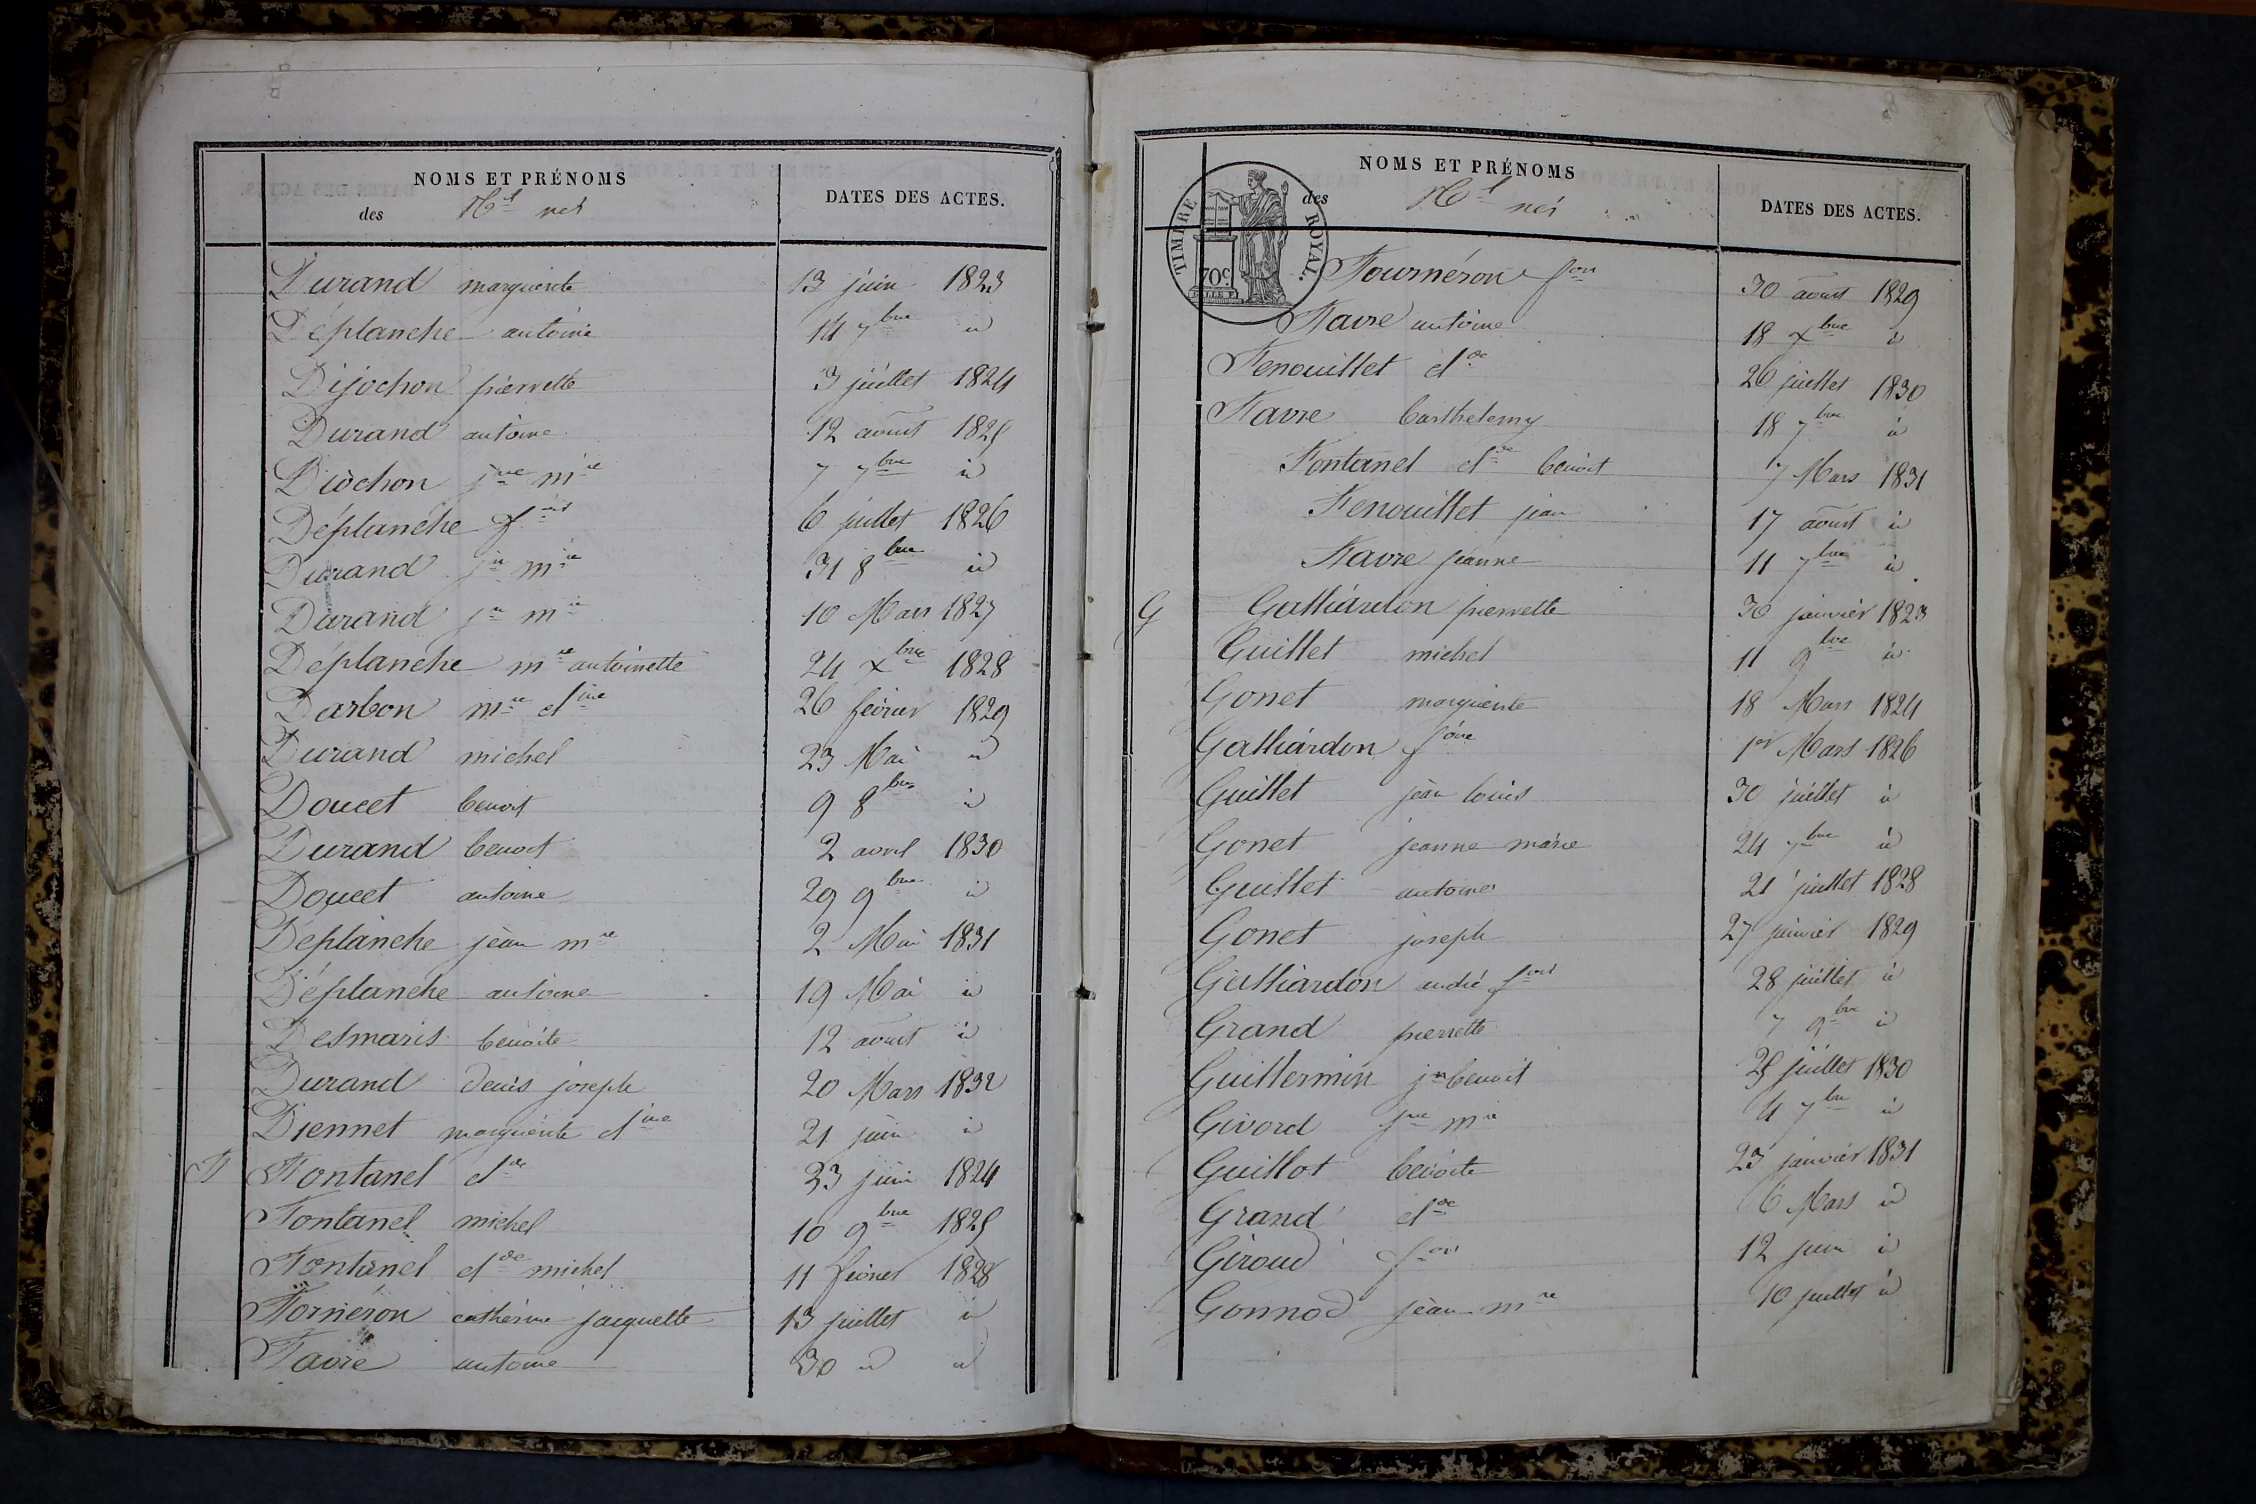 NOMS ET PRÉNOMS
des
DATES DES ACTES.
Durand marguerite 13 juin 1823
Déplanche antoine 14 7bre id
Dijochon pierrette 3 juillet 1824
Durand antoine 12 aoust 1825
Diochon jne mie 7 7bre id
Déplanche fois 6 juillet 1826
Durand jn mie 31 8bre id
Durand jn mie 10 Mars 1827
Déplanche mie antoinette 24 xbre 1828
Darbon mie cline 26 février 1829
Durand michel 23 Mai id
Doucet benoit 9 8bre id
Durand benoit 2 avril 1830
Doucet antoine 29 9bre id
Déplanche jean mie 2 Mai 1831
Déplanche antoine 19 Mai id
Desmaris benoite 12 aoust id
Durand denis joseph 20 Mars 1832
Diennet marguerite cline 21 juin id
F Fontanel clde 23 juin 1824
Fontanel michel 10 9bre 1825
Fontanel clde michel 11 février 1828
Fornéron cathérine jacquette 13 juillet id
Favre antoine 30 id id
NOMS ET PRÉNOMS
des
DATES DES ACTES.
TIMBRE ROYAL.
70c.
Fournéron fois 30 aoust 1829
Favre antoine 18 xbre id
Fenouillet clde 26 juillet 1830
Favre barthelemy 18 7bre id
Fontanel clde benoit 7 Mars 1831
Fenouillet jean 17 aoust id
Favre jeanne 11 7bre id
G Galliardon pierrette 30 janvier 1823
Guillet michel 11 9bre id
Gonet marguerite 18 Mars 1824
Galliardon foise 1er Mars 1826
Guillet jean louis 30 juillet id
Gonet jeanne marie 24 7bre id
Guillet antoine 21 juillet 1828
Gonet joseph 27 janvier 1829
Galliardon andré fois 28 juillet id
Grand pierrette 7 9bre id
Guillermin jn benoit 25 juillet 1830
Givord jne mie 4 7bre id
Guillot benoite 23 janvier 1831
Grand clde 6 Mars id
Giroud fois 12 juin id
Gonnod jean mie 10 juillet id